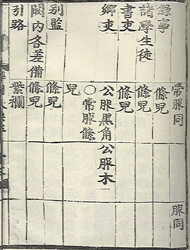 常服同 服同
錄事 絛兒
諸學生徒 絛兒
書吏 絛兒
鄕吏 公服黑角 公服木
○常服絛
兒
別監 絛兒
闕內各差備 絛兒
引路